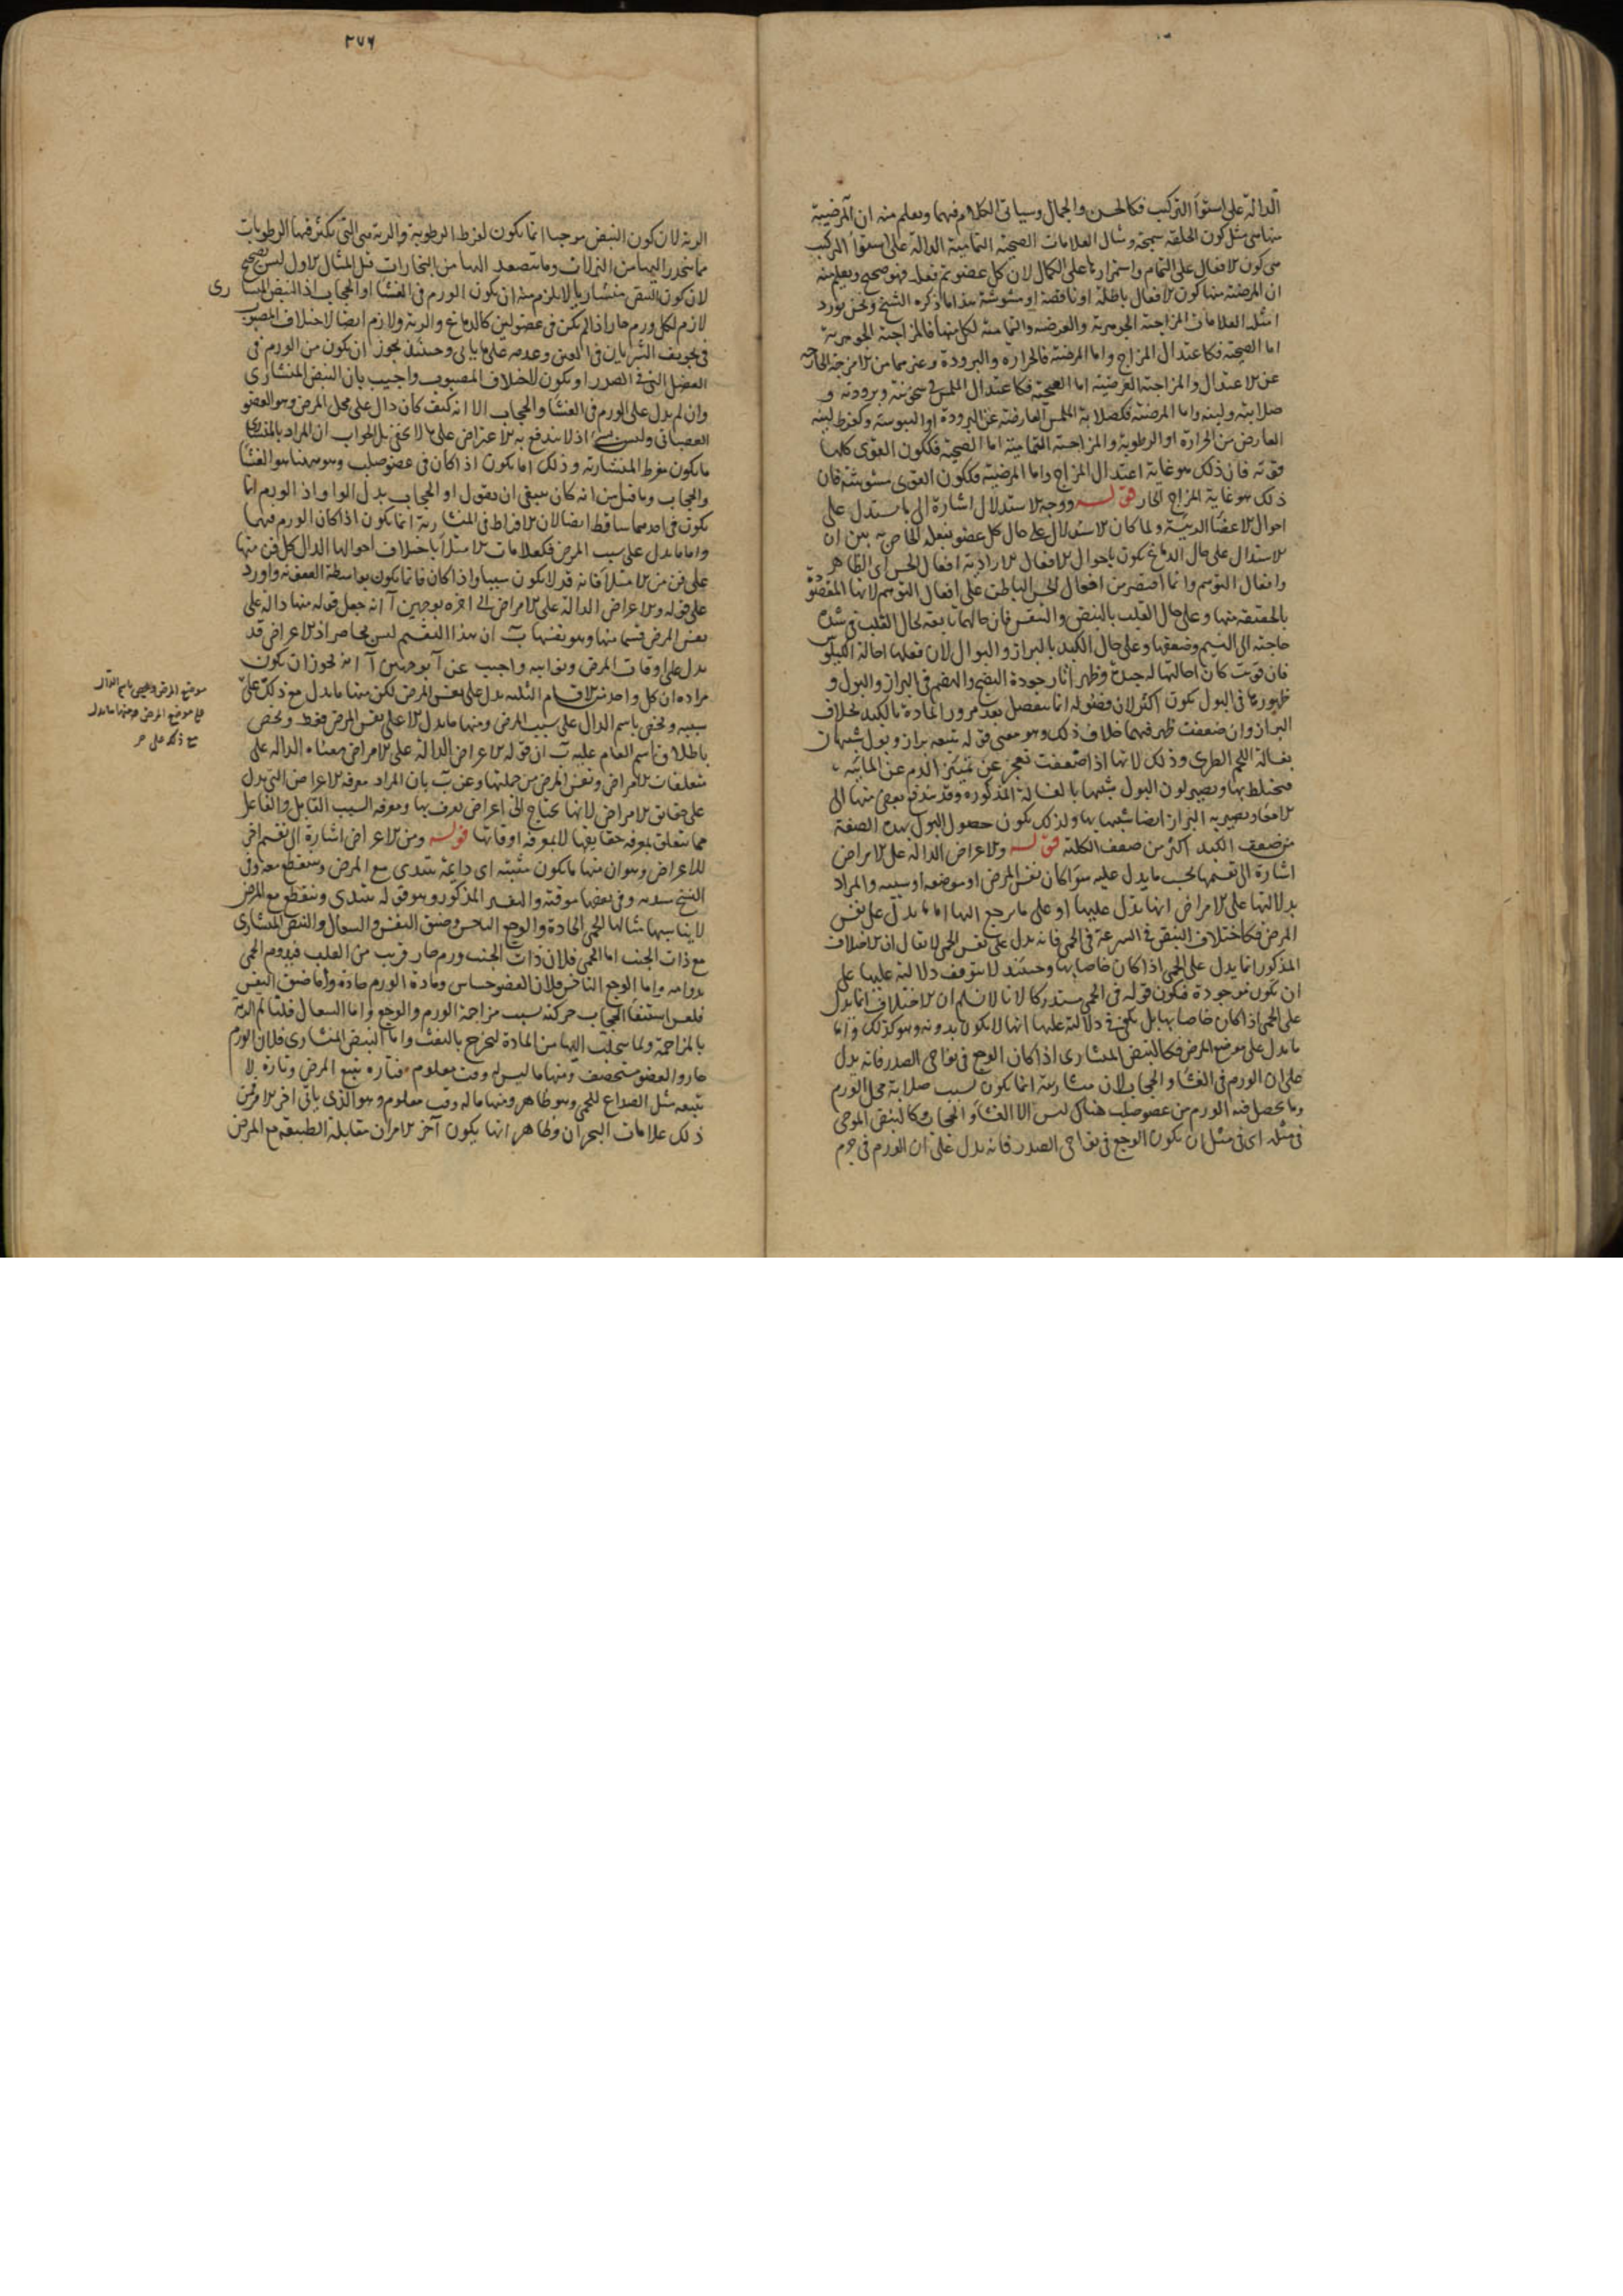 الدالة على استواء التركيب فكالحسن والجمال وسياتى الكلام فيهما ويعلم منه ان المرضية
منها هى مثل كون الخلقة سمجة ومثال العلامات الصحية التمامية الدالة على استواء التركيب
هى كون الافعال على التمام واستمرارها على الكمال لان كل عضو تم فعله فهو صحى ويعلم منه
ان المرضية منها كون الافعال باطلة او ناقصة او مشوشة هذا ما ذكره الشيخ ونحن نورد
امثلة العلامات المزاجية الجوهرية والعرضية والتمامية لكل منها فالمزاجية الجوهرية
اما الصحية فكاعتدال المزاج واما المرضية فالحرارة والبرودة وغيرهما من الامزجة الخارجة
عن الاعتدال والمزاجية العرضية اما الصحية فكاعتدال الملمس فى سخونته وبرودته و
صلابته ولينه واما المرضية فكصلابة الملمس العارضة عن البرودة او اليبوسة وكفرط لينه
العارض من الحرارة او الرطوبة والمزاجية التمامية اما الصحية فككون القوى كلها
قوية فان ذلك هو غاية اعتدال المزاج واما المرضية فككون القوى مشوشة فان
ذلك هو غاية المزاج الحار قوله ووجه الاستدلال اشارة الى ما يستدل على
احوال الاعضاء الرئيسة ولما كان الاستدلال على حال كل عضو بفعله الخاص به بين ان
الاستدال على حال الدماغ يكون باحوال الافعال الارادية افعال الحس اى الظاهر
وافعال التوهم وانما اقتصر من افعال الحس الباطن على افعال التوهم لانها المقصود
بالحقيقة منها وعلى حال القلب بالنبض والنفس فان حالهما تابعة لحال القلب فى شدة
حاجته الى النسيم وضعفها وعلى حال الكبد بالبراز والبول لان فعلها احالة الكيلوس
فان قويت كان احالتها له جيدة وظهر اثار جودة النضج والهضم فى البراز والبول و
ظهورها فى البول يكون اكثر لان فضوله انما تنفصل بعد مرور المادة بالكبد بخلاف
البراز وان ضعفت ظهر فيهما خلاف ذلك وهو معنى قوله يتبعه براز وبول شبيهان
بغسالة اللحم الطرى وذلك لانها اذا ضعفت تعجز عن تمييز الدم عن المائية
فيختلط بها ويصير لون البول شبيها بالغسالة المذكورة وقد يندفع بعض منها الى
الامعاء ويصير به البراز ايضا شبيها بها ولذلك يكون حصول البول بهذه الصفة
من ضعف الكبد اكثر من ضعف الكلية قوله والاعراض الدالة على الامراض
اشارة الى تقسيمها بحسب ما يدل عليه سواء كان نفس المرض او موضعه او سببه والمراد
بدلالتها على الامراض انها تدل عليها او على ما يرجع اليها اما ما يدل على نفس
المرض فكاختلاف النبض فى السرعة فى الحمى فانه يدل على نفس الحمى لا يقال ان الاختلاف
المذكور انما يدل على الحمى اذا كان خاصا بها وحينئذ لا يتوقف دلالته عليها على
ان تكون موجودة فيكون قوله فى الحمى مستدركا لانا لا نسلم ان الاختلاف انما يدل
على الحمى اذا كان خاصا بها بل يكفى فى دلالته عليها انها لا يكون بدونه وهو كذلك واما
ما يدل على موضع المرض فكالنبض المنشارى اذا كان الوجع فى نواحى الصدر فانه يدل
على ان الورم فى الغشاء والحجاب لان منشاريته انما يكون بسبب صلابة محل الورم
وما يحصل فيه الورم من عضو صلب هناك ليس الا الغشاء والحجاب وكالنبض الموجى
فى مثله اى فى مثل ان يكون الوجع فى نواحى الصدر فانه يدل على ان الورم فى جرم
٢٧٦
الرية لان كون النبض موجيا انما يكون لفرط الرطوبة والرية هى التى تكثر فيها الرطوبات
مما ينحدر اليها من النزلات وما يتصعد اليها من البخارات قيل المثال الاول ليس بصحيح
لان كون النبض منشاريا لا يلزم منه ان يكون الورم فى الغشاء او الحجاب اذ النبض المنشارى
لازم لكل ورم حار اذا لم يكن فى عضو لين كالدماغ والرية ولازم ايضا لاختلاف المصبوب
فى تجويف الشريان فى العفن وعدمه على ما ياتى وحينئذ يجوز ان يكون من الورم فى
العضل التى فى الصدر او يكون لاختلاف المصبوب واجيب بان النبض المنشارى
وان لم يدل على الورم فى الغشاء والحجاب الا انه كيف كان دال على محل المرض وهو العضو
العصبانى وليس بشئ اذ لا يندفع به الاعتراض على ما لا يخفى بل الجواب ان المراد بالمنشارى
ما يكون مفرط المنشارية وذلك انما يكون اذا كان فى عضو صلب وهو ههنا هو الغشاء
والحجاب وما قيل من انه كان ينبغى ان يقول او الحجاب بدل الواو اذ الورم انما
يكون فى احدهما ساقط ايضا لان الافراط فى المنشارية انما يكون اذا كان الورم فيهما
واما ما يدل على سبب المرض فكعلامات الامتلاء باختلاف احوالها الدال كل فن منها
على فن من الامتلاء فانه قد لا يكون سببا واذا كان فانما يكون بواسطة العفونة واورد
على قوله والاعراض الدالة على الامراض الى اخره بوجهين آ انه جعل قوله منها دالة على
نفس المرض قسما منها وهو نفسها ب ان هذا التقسيم ليس بحاصر اذ الاعراض قد
يدل على اوقات المرض ونوائبه واجيب عن آ بوجهين آ انه يجوز ان يكون
مراده ان كل واحد من الاقسام الثلثة يدل على نفس المرض لكن منها ما يدل مع ذلك على
سببه ويخص باسم الدال على سبب المرض ومنها ما يدل الا على نفس المرض فقط ويخص
باطلاق اسم العام عليه ب ان قوله الاعراض الدالة على الامراض معناه الدالة على
متعلقات الامراض ونفس المرض من جملتها وعن ب بان المراد معرفة الاعراض التى يدل
على حقائق الامراض لانها يحتاج الى اعراض يعرف بها ومعرفة السبب القابل والفاعل
مما يتعلق بمعرفة حقايقها لا بمعرفة اوقاتها قوله ومن الاعراض اشارة الى تقسيم اخر
للاعراض وهو ان منها ما يكون مثبتة اى دايمة يبتدى مع المرض وينقطع معه وفى
النسخ وفى بعضها موقتة والتفسير المذكور وهو قوله يبتدى وينقطع مع المرض
لا يناسبها مثالها الحمى الحادة والوجع الناخس وضيق النفس والسعال والنبض المنشارى
مع ذات الجنب اما الحمى فلان ذات الجنب ورم حار قريب من القلب فيدوم الحمى
بدوامه واما الوجع الناخس فلان العضو حساس ومادة الورم حادة واما ضيق النفس
فلعسر انبساط الحجاب حركته بسبب مزاحمة الورم والوجع واما السعال فلتالم الرية
بالمزاحمة ولما يتحلب اليها من المادة ليخرج بالنفث واما النبض المنشارى فلان الورم
حار والعضو مستحصف ومنها ما ليس له وقت معلوم فتارة يتبع المرض وتارة لا
يتبعه مثل الصداع للحمى وهو ظاهر ومنها ما له وقت معلوم وهو الذى ياتى اخر الامر فمن
ذلك علامات البحران وظاهر انها يكون آخر الامر لان مقابلة الطبيعة مع المرض
موضع المرض ويخص باسم الدال
على موضع المرض ومنها ما يدل
مع ذلك على